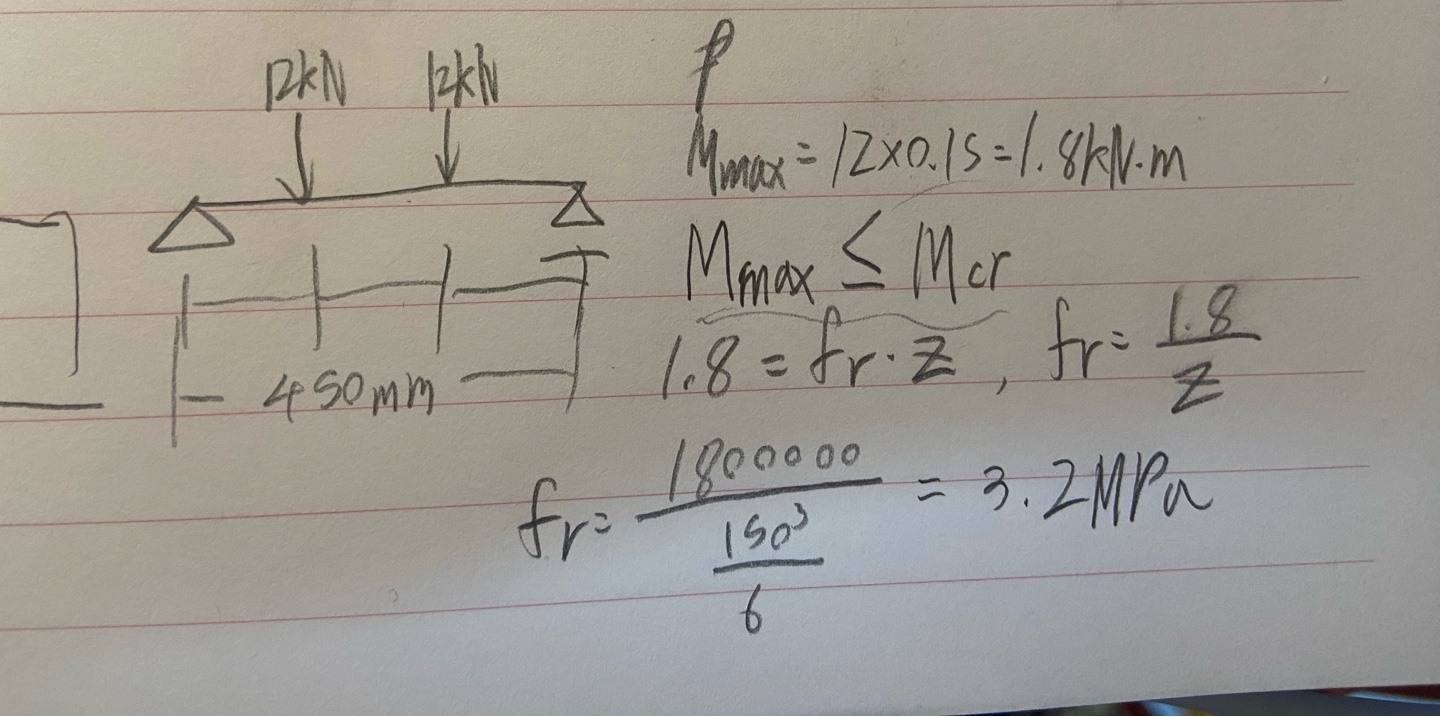 12kN 12kN
P
Mmax = 12×0.15 = 1.8kN·m
Mmax ≤ Mcr
1.8 = fr · Z , fr = 1.8/Z
450mm
fr = 1800000/(150³/6) = 3.2MPa